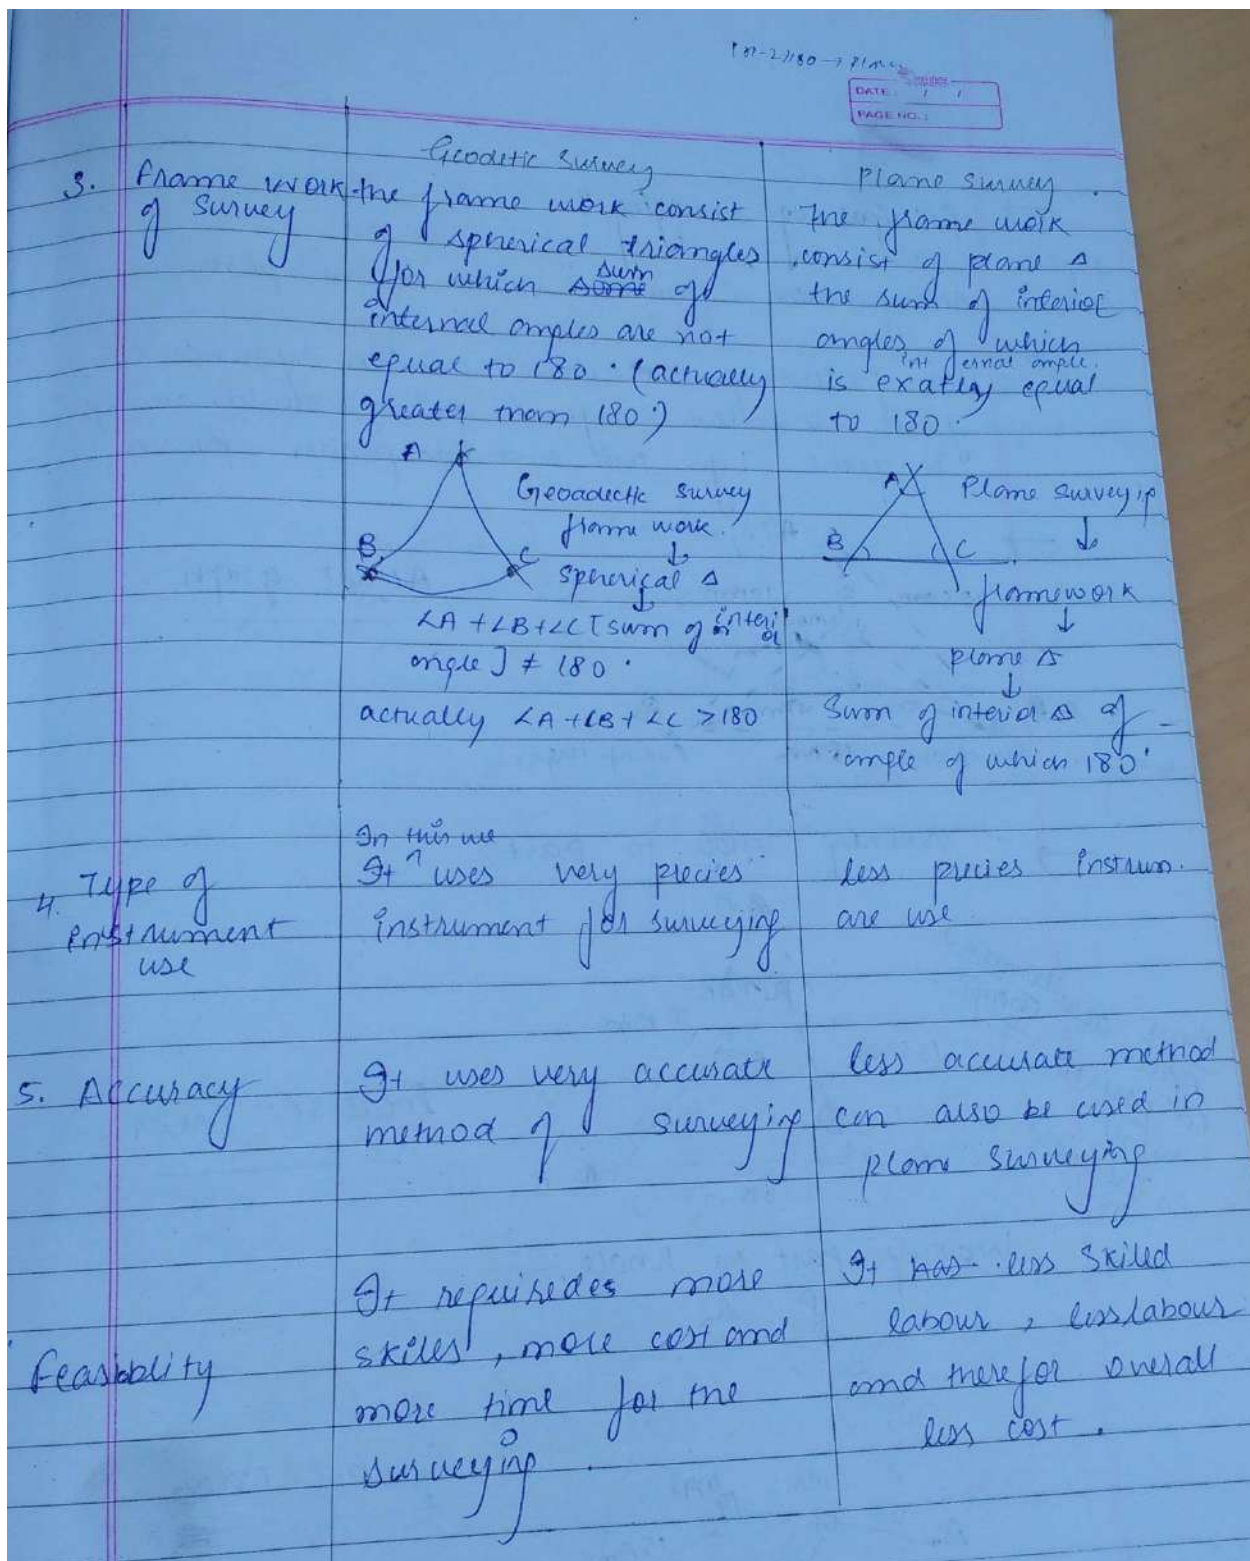 (n-2)180 →
DATE: / /
PAGE NO.:
Geodetic Survey
Plane Survey.
3. Frame work of Survey
the frame work consist
of spherical triangles
for which sum of
internal angles are not
equal to 180° (actually
greater than 180°)
The frame work
consist of plane Δ
the sum of interior
angles of which
internal angle.
is exatley equal
to 180°
A
B
C
Geoadectic Survey
frame work.
↓
spherical Δ
↓
∠A + ∠B + ∠C [sum of interior
angle] ≠ 180°
actually ∠A + ∠B + ∠C > 180
A
B
C
Plane survey ip
↓
framework
↓
plane Δ
↓
Sum of interior Δ of
angle of which 180°
4. Type of
instrument
use
In this we
It ^ uses very precies
instrument for surveying
less precies instrum.
are use
5. Accuracy
It uses very accurate
method of surveying
less accurate method
can also be used in
plane surveying
Feasiblity
It requiredes more
skilles, more cost and
more time for the
surveying.
It has less skilled
labour, less labour
and therefor overall
less cost.